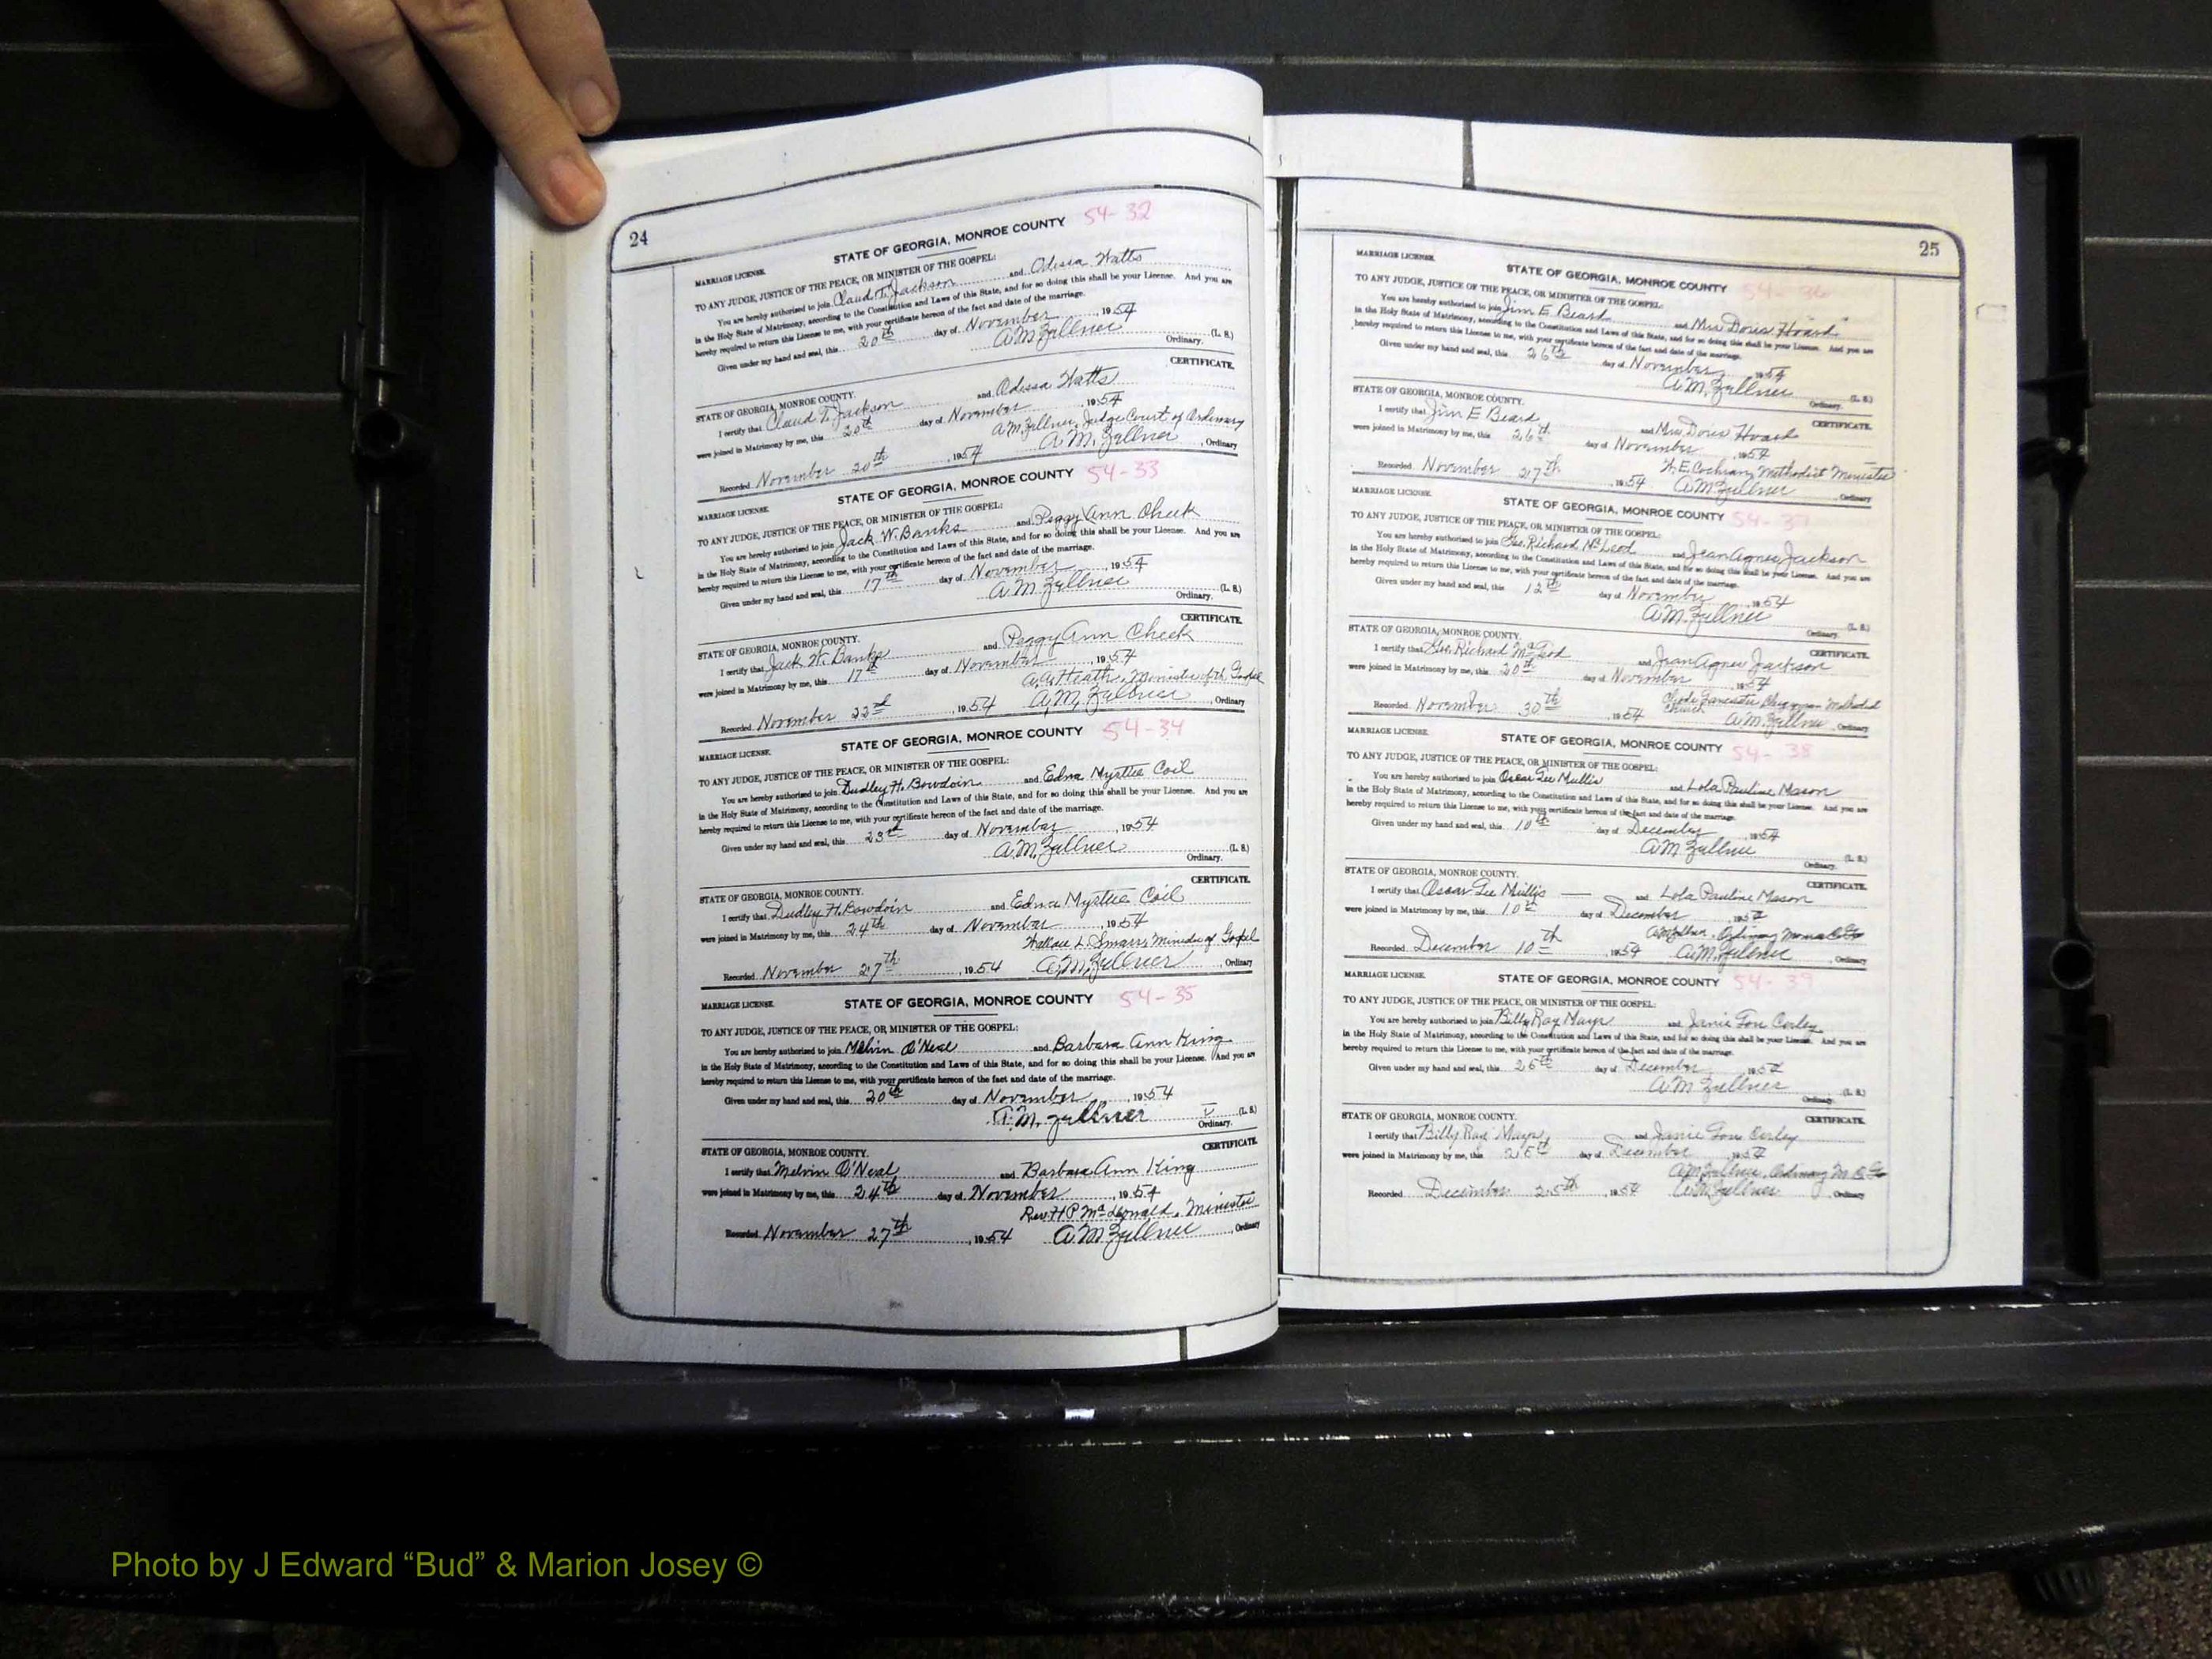 24
STATE OF GEORGIA, MONROE COUNTY 54-32
MARRIAGE LICENSE.
TO ANY JUDGE, JUSTICE OF THE PEACE, OR MINISTER OF THE GOSPEL:
You are hereby authorized to join Claud T. Jackson and Odessa Watts
in the Holy State of Matrimony, according to the Constitution and Laws of this State, and for so doing this shall be your License. And you are
hereby required to return this License to me, with your certificate hereon of the fact and date of the marriage.
Given under my hand and seal, this 20th day of November, 1954
A.M. Zellner (L. S.)
Ordinary.
CERTIFICATE.
STATE OF GEORGIA, MONROE COUNTY.
I certify that Claud T. Jackson and Odessa Watts
were joined in Matrimony by me, this 20th day of November, 1954
A.M. Zellner, Judge Court of Ordinary
Recorded November 20th, 1954 A.M. Zellner, Ordinary
STATE OF GEORGIA, MONROE COUNTY 54-33
MARRIAGE LICENSE.
TO ANY JUDGE, JUSTICE OF THE PEACE, OR MINISTER OF THE GOSPEL:
You are hereby authorized to join Jack W. Banks and Peggy Ann Cheek
in the Holy State of Matrimony, according to the Constitution and Laws of this State, and for so doing this shall be your License. And you are
hereby required to return this License to me, with your certificate hereon of the fact and date of the marriage.
Given under my hand and seal, this 17th day of November, 1954
A.M. Zellner (L. S.)
Ordinary.
CERTIFICATE.
STATE OF GEORGIA, MONROE COUNTY.
I certify that Jack W. Banks and Peggy Ann Cheek
were joined in Matrimony by me, this 17th day of November, 1954
Heath, Minister of the Gospel
Recorded November 22nd, 1954 A.M. Zellner, Ordinary
STATE OF GEORGIA, MONROE COUNTY 54-34
MARRIAGE LICENSE.
TO ANY JUDGE, JUSTICE OF THE PEACE, OR MINISTER OF THE GOSPEL:
You are hereby authorized to join Dudley H. Bowdoin and Edna Myrtle Coil
in the Holy State of Matrimony, according to the Constitution and Laws of this State, and for so doing this shall be your License. And you are
hereby required to return this License to me, with your certificate hereon of the fact and date of the marriage.
Given under my hand and seal, this 23rd day of November, 1954
A.M. Zellner (L. S.)
Ordinary.
CERTIFICATE.
STATE OF GEORGIA, MONROE COUNTY.
I certify that Dudley H. Bowdoin and Edna Myrtle Coil
were joined in Matrimony by me, this 24th day of November, 1954
Wallace L. Smarr, Minister of Gospel
Recorded November 27th, 1954 A.M. Zellner, Ordinary
MARRIAGE LICENSE. STATE OF GEORGIA, MONROE COUNTY 54-35
TO ANY JUDGE, JUSTICE OF THE PEACE, OR MINISTER OF THE GOSPEL:
You are hereby authorized to join Melvin O'Neal and Barbara Ann King
in the Holy State of Matrimony, according to the Constitution and Laws of this State, and for so doing this shall be your License. And you are
hereby required to return this License to me, with your certificate hereon of the fact and date of the marriage.
Given under my hand and seal, this 20th day of November, 1954
A.M. Zellner (L. S.)
Ordinary.
CERTIFICATE.
STATE OF GEORGIA, MONROE COUNTY.
I certify that Melvin O'Neal and Barbara Ann King
were joined in Matrimony by me, this 24th day of November, 1954
Rev. H P McDonald, Minister
Recorded November 27th, 1954 A.M. Zellner, Ordinary
25
MARRIAGE LICENSE.
STATE OF GEORGIA, MONROE COUNTY 54-36
TO ANY JUDGE, JUSTICE OF THE PEACE, OR MINISTER OF THE GOSPEL:
You are hereby authorized to join Jim E Beard and Mrs Doris Hoard
in the Holy State of Matrimony, according to the Constitution and Laws of this State, and for so doing this shall be your License. And you are
hereby required to return this License to me, with your certificate hereon of the fact and date of the marriage.
Given under my hand and seal, this 26th day of November, 1954
A.M. Zellner (L. S.)
Ordinary.
STATE OF GEORGIA, MONROE COUNTY.
CERTIFICATE.
I certify that Jim E Beard and Mrs Doris Hoard
were joined in Matrimony by me, this 26th day of November, 1954
W.E. Cochran, Methodist Minister
Recorded November 27th, 1954 A.M. Zellner, Ordinary
MARRIAGE LICENSE.
STATE OF GEORGIA, MONROE COUNTY 54-37
TO ANY JUDGE, JUSTICE OF THE PEACE, OR MINISTER OF THE GOSPEL:
You are hereby authorized to join Geo. Richard McLeod and Jean Agnes Jackson
in the Holy State of Matrimony, according to the Constitution and Laws of this State, and for so doing this shall be your License. And you are
hereby required to return this License to me, with your certificate hereon of the fact and date of the marriage.
Given under my hand and seal, this 12th day of November, 1954
A.M. Zellner (L. S.)
Ordinary.
STATE OF GEORGIA, MONROE COUNTY.
CERTIFICATE.
I certify that Geo. Richard McLeod and Jean Agnes Jackson
were joined in Matrimony by me, this 20th day of November, 1954
Clyde Lancaster Methodist
Church
Recorded November 30th, 1954 A.M. Zellner, Ordinary
MARRIAGE LICENSE.
STATE OF GEORGIA, MONROE COUNTY 54-38
TO ANY JUDGE, JUSTICE OF THE PEACE, OR MINISTER OF THE GOSPEL:
You are hereby authorized to join Oscar Lee Mullis and Lola Pauline Mason
in the Holy State of Matrimony, according to the Constitution and Laws of this State, and for so doing this shall be your License. And you are
hereby required to return this License to me, with your certificate hereon of the fact and date of the marriage.
Given under my hand and seal, this 10th day of December, 1954
A.M. Zellner (L. S.)
Ordinary.
STATE OF GEORGIA, MONROE COUNTY.
CERTIFICATE.
I certify that Oscar Lee Mullis and Lola Pauline Mason
were joined in Matrimony by me, this 10th day of December, 1954
A.M. Zellner, Ordinary Monroe Co Ga
Recorded December 10th, 1954 A.M. Zellner, Ordinary
MARRIAGE LICENSE.
STATE OF GEORGIA, MONROE COUNTY 54-39
TO ANY JUDGE, JUSTICE OF THE PEACE, OR MINISTER OF THE GOSPEL:
You are hereby authorized to join Billy Ray Mays and Janie Corley
in the Holy State of Matrimony, according to the Constitution and Laws of this State, and for so doing this shall be your License. And you are
hereby required to return this License to me, with your certificate hereon of the fact and date of the marriage.
Given under my hand and seal, this 25th day of December, 1954
A.M. Zellner (L. S.)
Ordinary.
STATE OF GEORGIA, MONROE COUNTY.
CERTIFICATE.
I certify that Billy Ray Mays and Janie Corley
were joined in Matrimony by me, this 25th day of December, 1954
A.M. Zellner, Ordinary M. C. Ga
Recorded December 25th, 1954 A.M. Zellner, Ordinary
Photo by J Edward “Bud” & Marion Josey ©